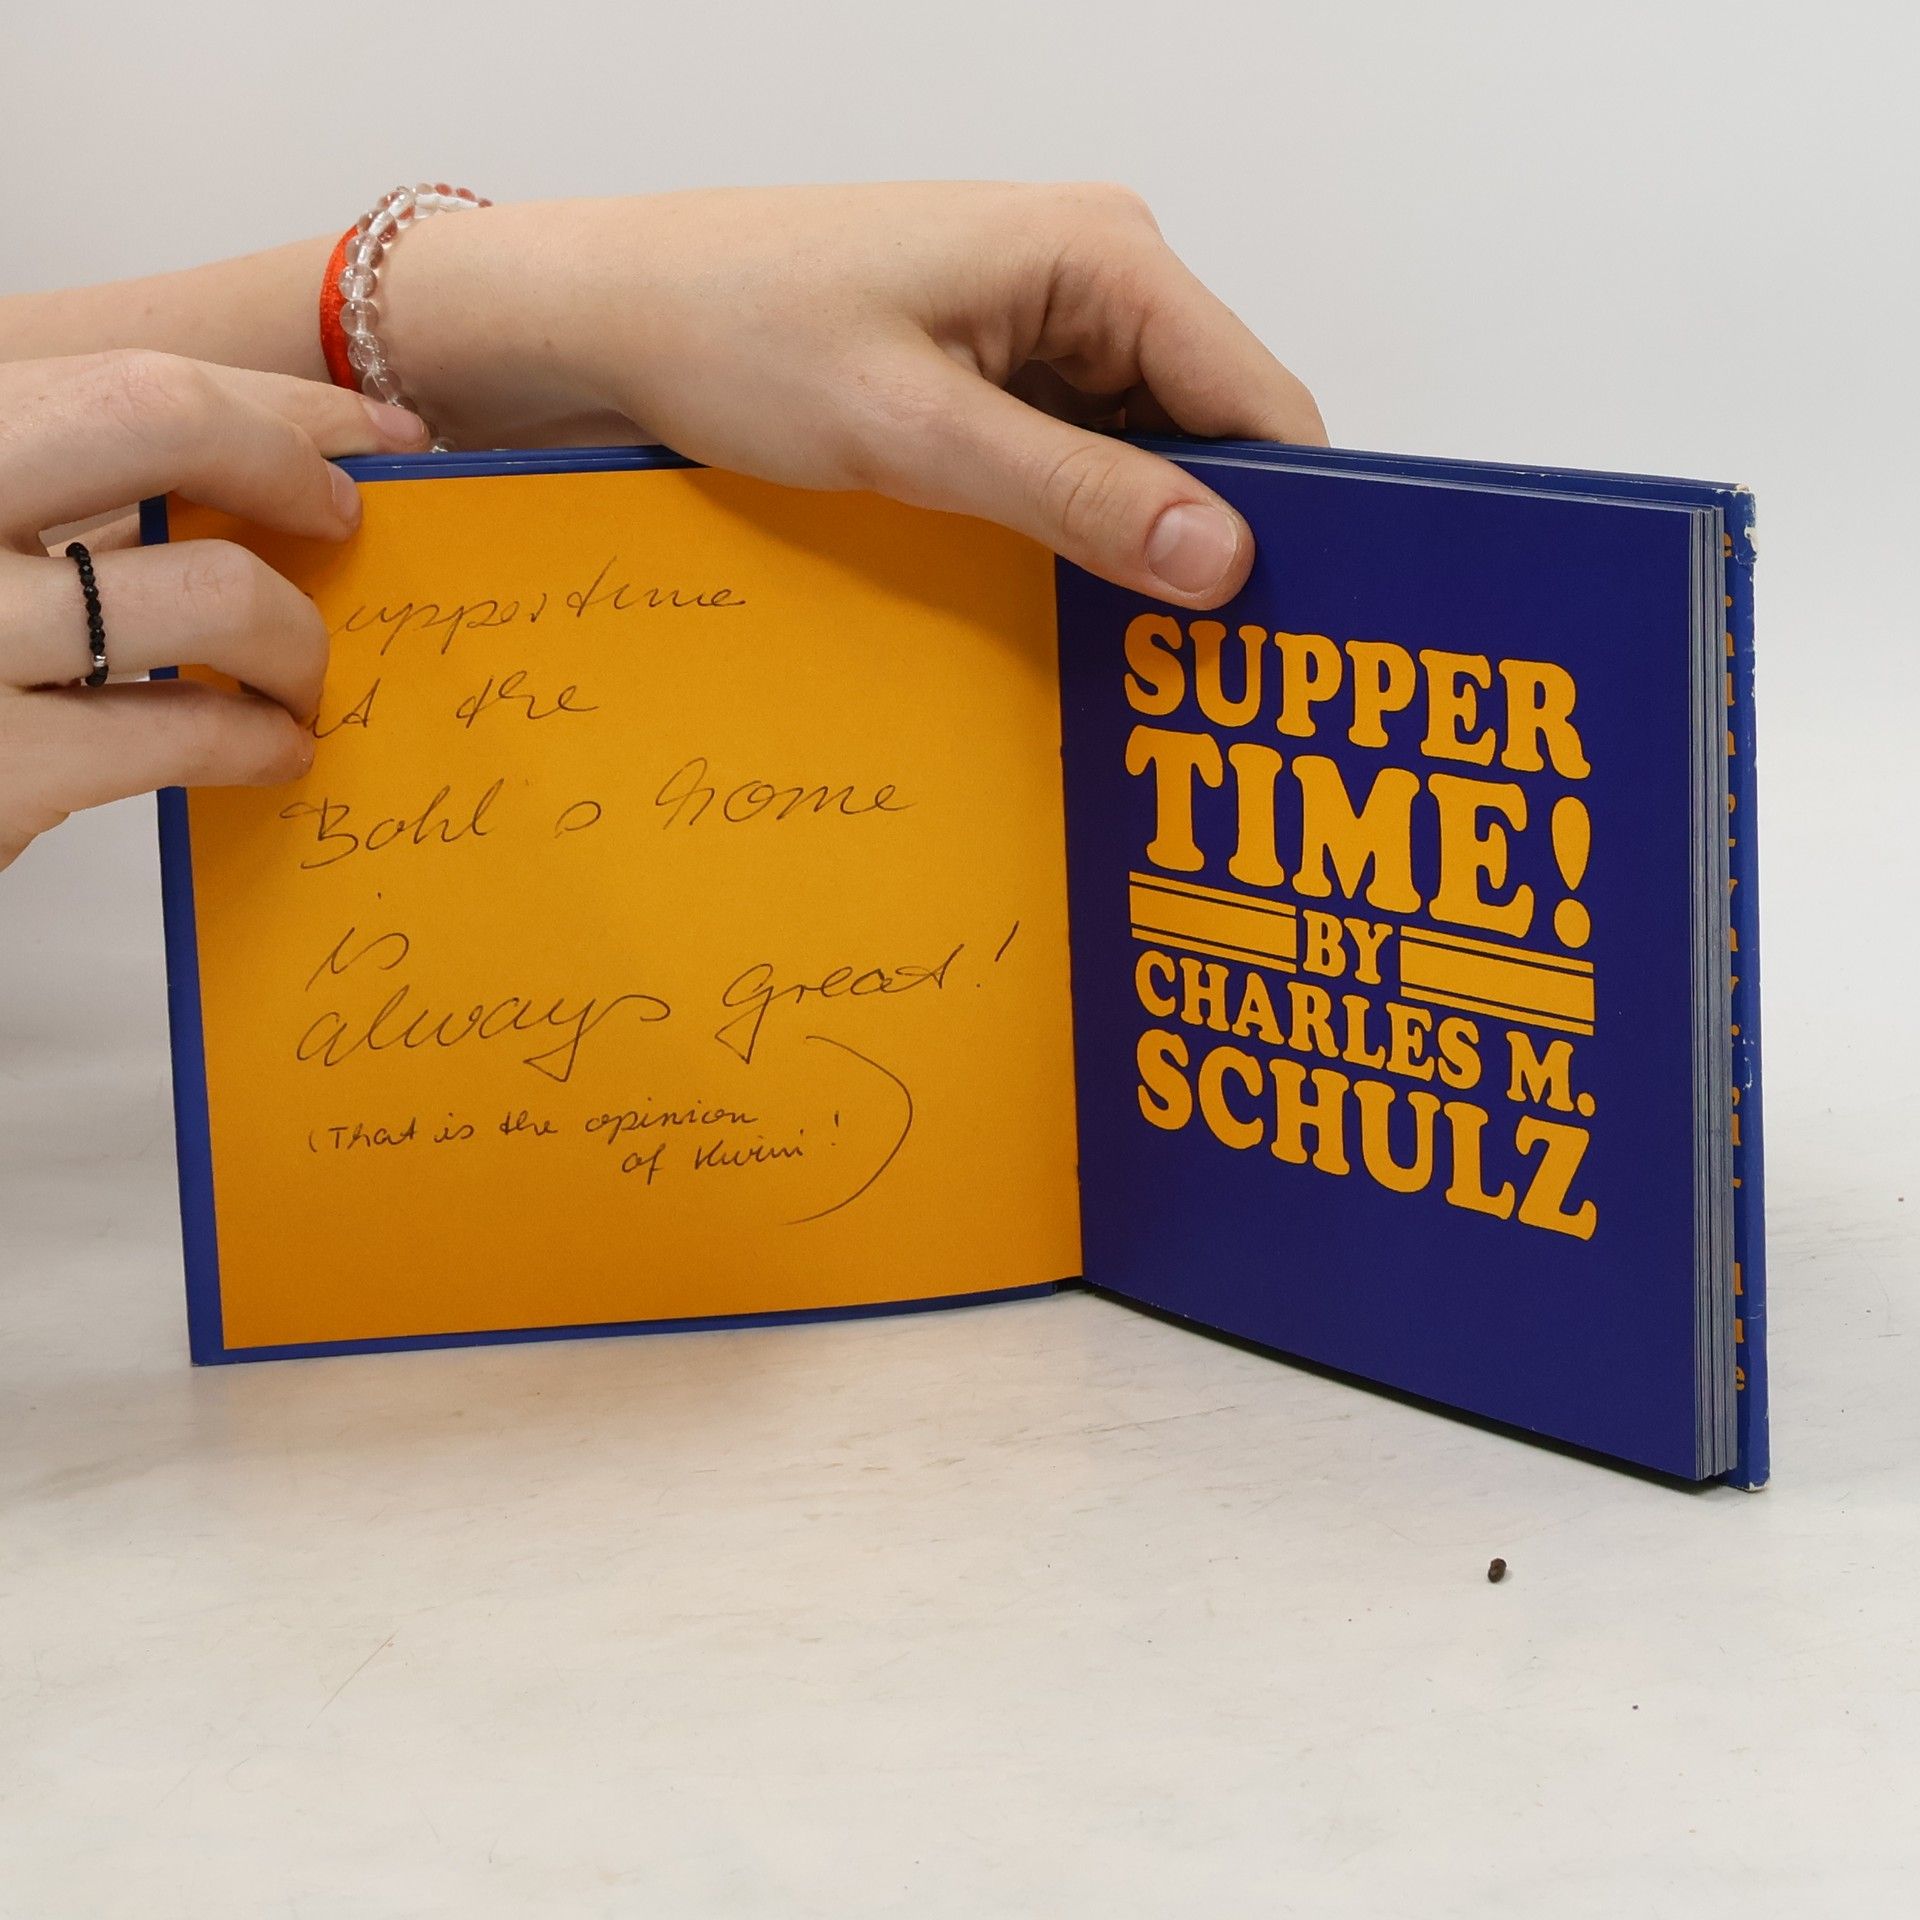 uppertime
at the
Bohl's home
is
always great!
(That is the opinion
of !)
SUPPER
TIME!
BY
CHARLES M.
SCHULZ